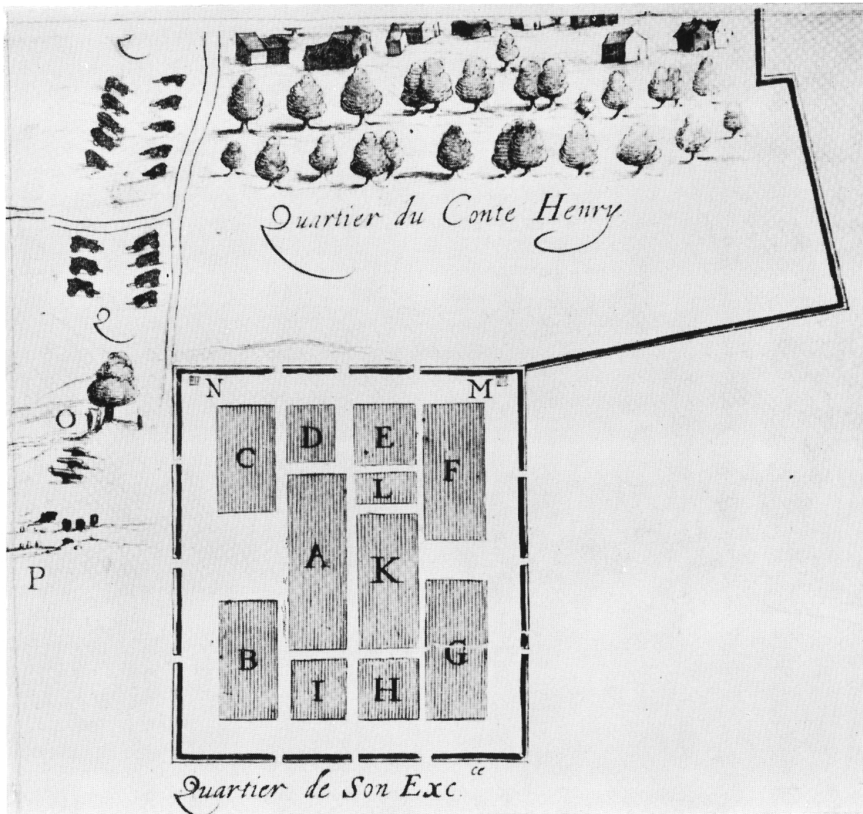 Quartier du Conte Henry.
N M
O
C D E F
L
A K
P
B I H G
Quartier de Son Exc.ce